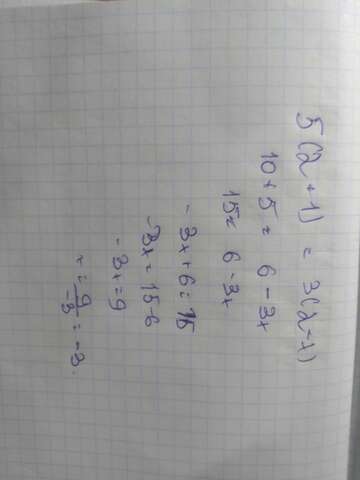 5(2+1) = 3(2-x)
10+5 = 6-3x
15= 6-3x
-3x+6=15
-3x=15-6
-3x=9
x=9/-3=-3.